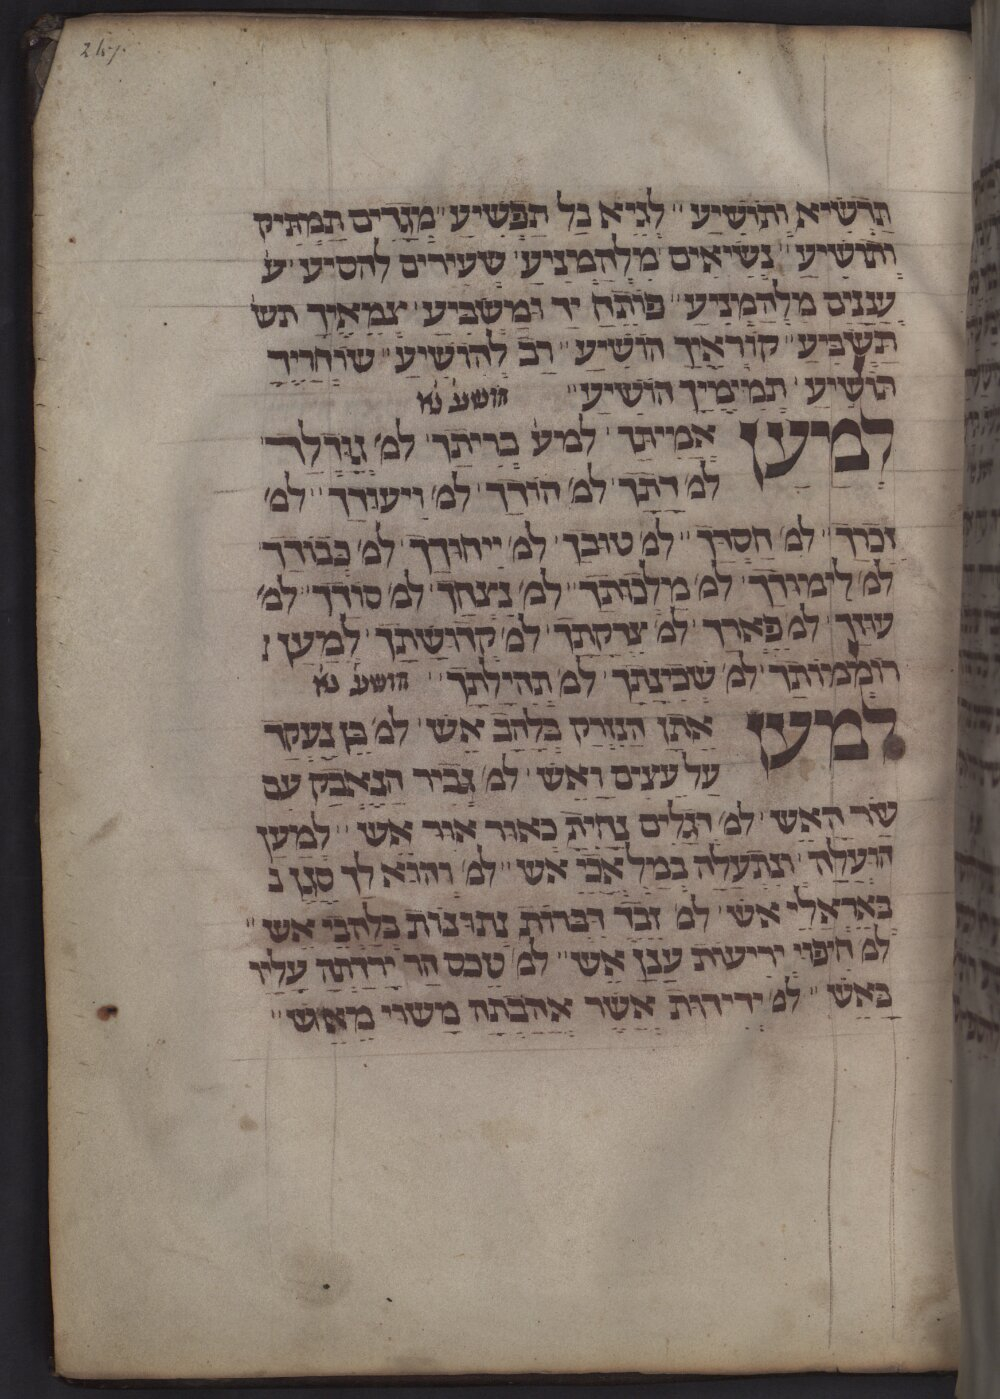 267
תַדְשִׁיא וְתוֹשִׁיעַ" לְגֵיא בל תַפְשִׁיעַ" מְגָדִים תַּמְתִּיק
וְתוֹשִׁיעַ" נְשִׂיאִים מִלְהַמְנִיעַ' שְׂעִירִים לְהַסִּיעַ' ע
עננים מִלְהַמְנִיעַ" פותח יד וּמַשְׂבִּיעַ' צְמֵאֶיךָ תש
תַּשְׂבִּיעַ" קוֹרְאֶיךָ הוֹשִׁיעַ" רַב לְהוֹשִׁיעַ" שׁוֹחֲרֶיךָ
תּוֹשִׁיעַ' תְּמִימֶיךָ הוֹשִׁיעַ" הושע' נא
למען אֲמִיתָּךְ' למע' בְּרִיתָךְ' למ' גָּוְדְלָךְ'
למ' דָתָךְ' למ' הוֹדָךְ' למ' וִיעוּדָךְ" למ'
זִכְרָךְ" למ' חַסְדָּךְ" למ' טוּבָךְ' למ' יִיחוּדָךְ' למ' כְּבוֹדָךְ
למ' לִימּוּדָךְ' למ' מַלְכוּתָךְ" למ' נִצְחָךְ' למ' סוֹדָךְ" למ'
עוּזָּךְ' למ' פְּאֵרָךְ' למ' צִדְקָתָךְ' למ' קְדוּשָּׁתָךְ' למען ר
רוֹמְמוּתָךְ' למ' שְׁכִינָתָךְ' למ' תְּהִילָּתָךְ" הושע' נא'
למען אֵתָן הַנִּזְרָק בְּלַהַב אֵשׁ' למ' בֵּן נֶעֱקַד
עַל עֵצִים וָאֵשׁ' למ' גִּבּוֹר הַנֶּאֱבַק עִם
שַׂר הָאֵשׁ' למ' דְגָלִים נָחִיתָ כְּאוֹר אוּר אֵשׁ" לְמַעַן
הוֹעֲלָה' וְנִתְעַלָּה כְּמַלְאֲכֵי אֵשׁ" למ' וְהוּא לָךְ סְגָן ב
בְּאֶרְאֶלֵּי אֵשׁ' למ' זֶבֶד דִּבְּרוֹת נְתוּנוֹת בְּלַהֲבֵי אֵשׁ"
למ' חִיפּוּי יְרִיעוֹת עֲנַן אֵשׁ" למ' טֶכֶס הַר יָרַדְתָּה עָלָיו
בָּאֵשׁ" למ' יְדִידוּת אֲשֶׁר אָהַבְתָּה מִשְּׁמֵי מֵאוּשׁ"